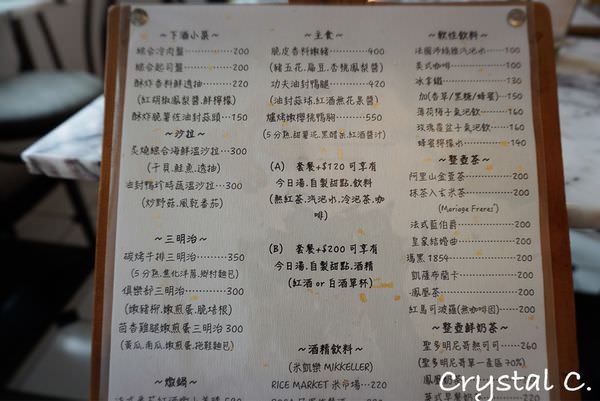 ~下酒小菜~
綜合冷肉盤 200
綜合起司盤 200
酥炸香料鮮透抽 220
(紅胡椒鳳梨醬.鮮檸檬)
酥炸脆薯佐油封蒜頭 150
~沙拉~
炙燒綜合海鮮溫沙拉 300
(干貝.鮭魚.透抽)
油封鴨珍時蔬溫沙拉 300
(炒野菇.風乾番茄)
~三明治~
碳烤牛排三明治 350
(5分熟.焦化洋蔥.鄉村麵包)
俱樂部三明治 300
(嫩豬胗.嫩煎蛋.脆培根)
茴香雞腿嫩煎蛋三明治 300
(黃瓜.南瓜.嫩煎蛋.拖鞋麵包)
~燉鍋~
~主食~
脆皮香料嫩豬 400
(豬五花.扁豆.杏桃鳳梨醬)
功夫油封鴨腿 420
(油封蒜球.紅酒無花果醬)
爐烤嫩櫻桃鴨胸 550
(5分熟.甜薯泥.黑醋栗.紅酒醬汁)
(A) 套餐+$120可享有
今日湯.自製甜點.飲料
(熱紅茶.汽泡水.冷泡茶.咖
啡)
(B) 套餐+$200可享有
今日湯.自製甜點.酒精
(紅酒or白酒單杯)
~酒精飲料~
(米凱樂MIKKELLER)
RICE MARKET 米市場 220
~軟性飲料~
法國沛綠雅汽泡水 100
美式咖啡 100
冰拿鐵 130
加(香草/黑糖/蜂蜜) 150
薄荷梅子氣泡飲 160
玫瑰覆盆子氣泡飲 160
蜂蜜檸檬水 140
~整壺茶~
阿里山金萱茶 200
抹茶入玄米茶 200
(Mariage Freres")
法式藍伯爵 200
皇家結婚曲 200
瑪黑1854 200
凱薩布蘭卡 200
鳳凰茶 200
紅馬可波羅(無咖啡因) 200
~整壺鮮奶茶~
聖多明尼哥熱可可 260
(聖多明尼哥單一產區70%)
鳳凰奶
英式早餐奶
Crystal C.